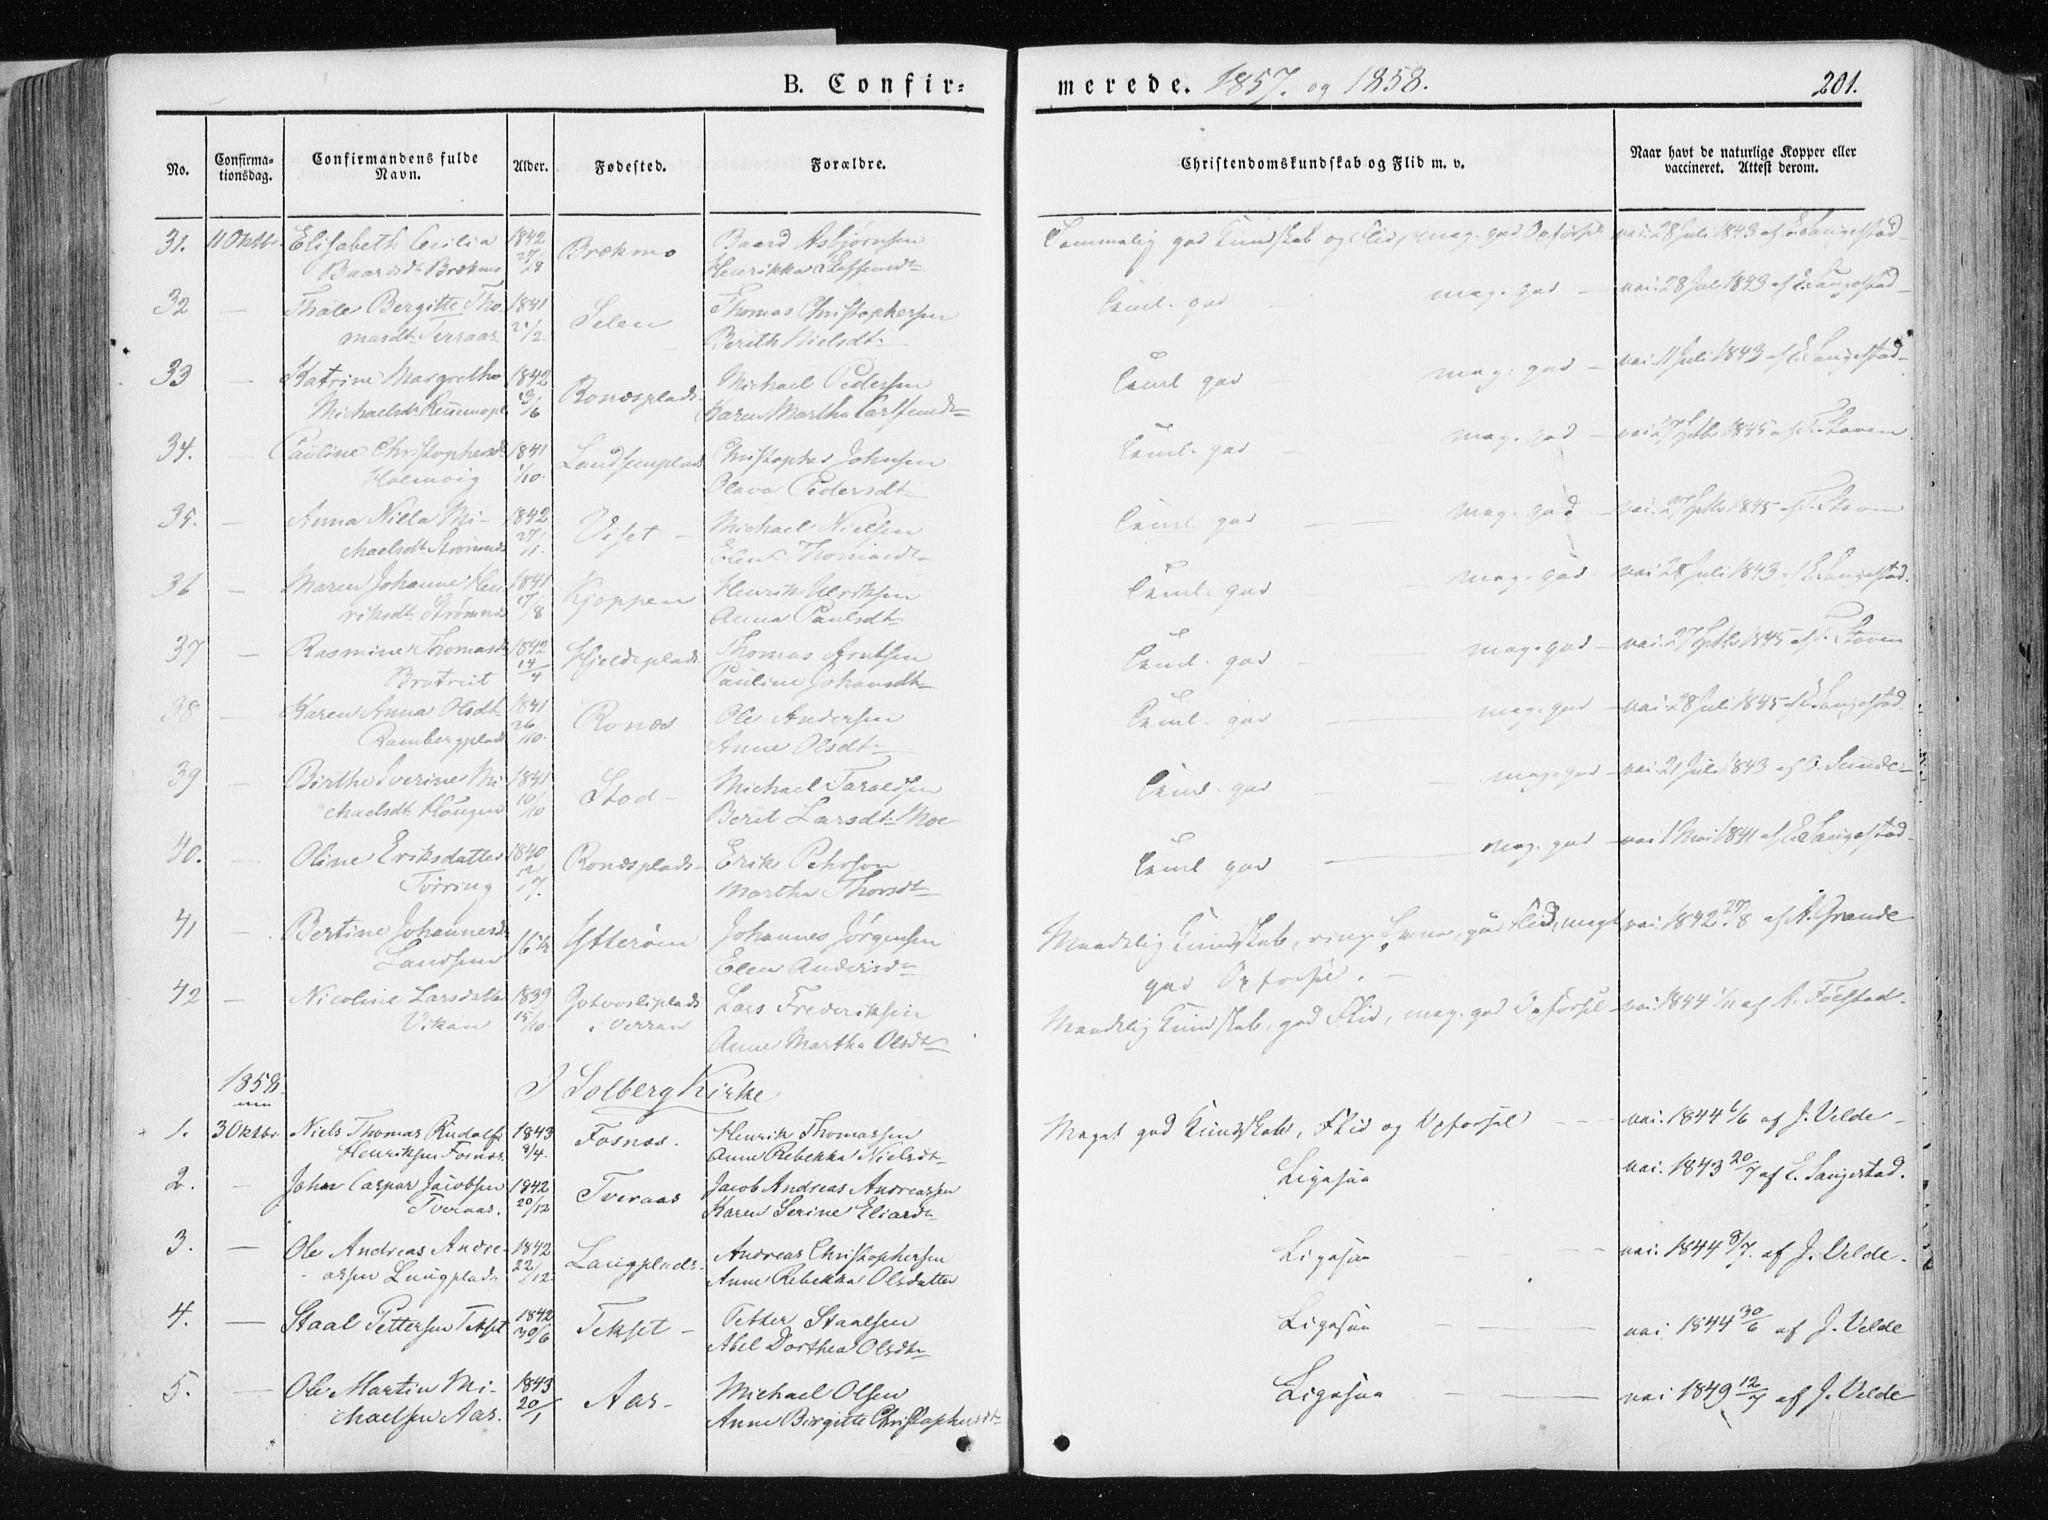 B. Confir-
merede. 1857. og 1858.
201.
No.
Confirma-
tionsdag.
Confirmandens fulde
Navn.
Alder.
Fødested.
Forældre.
Christendomskundskab og Flid m. v.
Naar havt de naturlige Kopper eller
vaccineret. Attest derom.
31. 11 Oktbr. Elisabeth Cecilia 1842 Brækmo Baard Asbjørnsen Temmelig god Kundskab og Flid, meg. god Opførsel vac. 28 Juli 1843 af E. Langestad
Baardsdt. Brækmo Henrikka Steffensdt.
32 — Thale Bergitte Tho- 1841 Selen Thomas Christophersen Teml. god — meg. god — vac. 28 Juli 1843 af E. Langestad
masdt. Berith Nielsdt.
33 — Katrine Margrethe 1842 Ronæsplads Michael Pedersen Teml. god — meg. god — vac. 11 Juli 1843 af E. Langestad
Michaelsdt. Karen Martha
34. — Pauline Christophersdt. 1841 Christopher Johnsen Teml. god — meg. god — vac. 27 Septb. 1845 af
1/10. Olava Pedersdt.
35. — Anna Nilla Mi- 1842 Viset — Michael Nielsen Teml. god — — meg. god — vac. 27 Septb. 1845 af
chaelsdt. Strømnæs 27/11. Elen Thomasdt.
36 — Maren Johanne Hen- 1841 Kjoppen Henrik Ulriksen Teml. god — meg. god — vac. 28 Juli 1843 af E. Langestad.
riksdt. Strømnæs 17/8 Anna Paulsdt.
37 — Rasmine Thomasdt. 1842 Hjeldeplads Thomas Arntsen Teml. god — — meg. god — vac. 27 Septb. 1845 af
Bratreit 14/4 Pauline Johansdt.
38 — Karen Anna Olsdt. 1841 Ronæs Ole Andersen Teml. god — — meg. god — vac. 28 Juli 1845 af E. Langestad.
Rambergplads 26/10. Anne Olsdt.
39 — Birthe Iverine Mi- 1841 Stod — Michael Taraldsen Teml. god — — meg. god — vac. 21 Juli 1843 af O. Sunde —
chaelsdt. Haugen 10/10 Berit Larsdt. Moe
40. — Oline Eriksdatter 1840 Ronæsplads — Erik Pehrson Teml. god — meg. god — vac. 1 Mai 1841 af E. Langestad —
Tørring Martha Thorsdt.
41 — Bertine Johannesdt. 16 ½ Ytterøen Johannes Jørgensen Maadelig Kundskab, ring. Evne, god Flid, meget vac. 1842 27/8 af A. Grande
Elen Andersdt. god Opførsel. —
42 — Nicoline Larsdatter 1839 Lars Frederiksen Maadelig Kundskab, god Flid, meg. god Opførsel — vac. 1844 af A.
Vikan 15/10. i Verran Anne Martha Olsdt.
1858. I Solberg Kirke
1. 3 Oktbr. Niels Thomas Rudolf 1843 Fosnæs. Henrik Thomassen Meget god Kundskab, Flid og Opførsel — — vac. 1844 6/6 af J. Velde —
Henriksen Fosnæs. 8/4. Anne Rebekka Nielsdt.
2. — John Caspar Jacobsen 1842 Tveraas Jacob Andreas Andreassen Ligesaa vac. 1843 20/7 af E. Langestad.
Tveraas. 20/12 Karen Serine Eliasdt.
3. — Ole Andreas Andre- 1842 Langplads. Andreas Christophersen Ligesaa — — vac. 1844 8/7. af J. Velde.
assen Langplads 22/12. Anne Rebekka Olsdatter
4. — Staal Pettersen Tekset 1842 Tekset — Petter Staalsen Ligesaa — — vac. 1844 30/6 af J. Velde
30/6 Abel Dorthea Olsdt.
5. — Ole Martin Mi- 1843 Aas — Michael Olsen Ligesaa — — vac 1849 12/7 af J. Velde
chaelsen Aas. 20/1 Anne Birgitte Christophersdt.